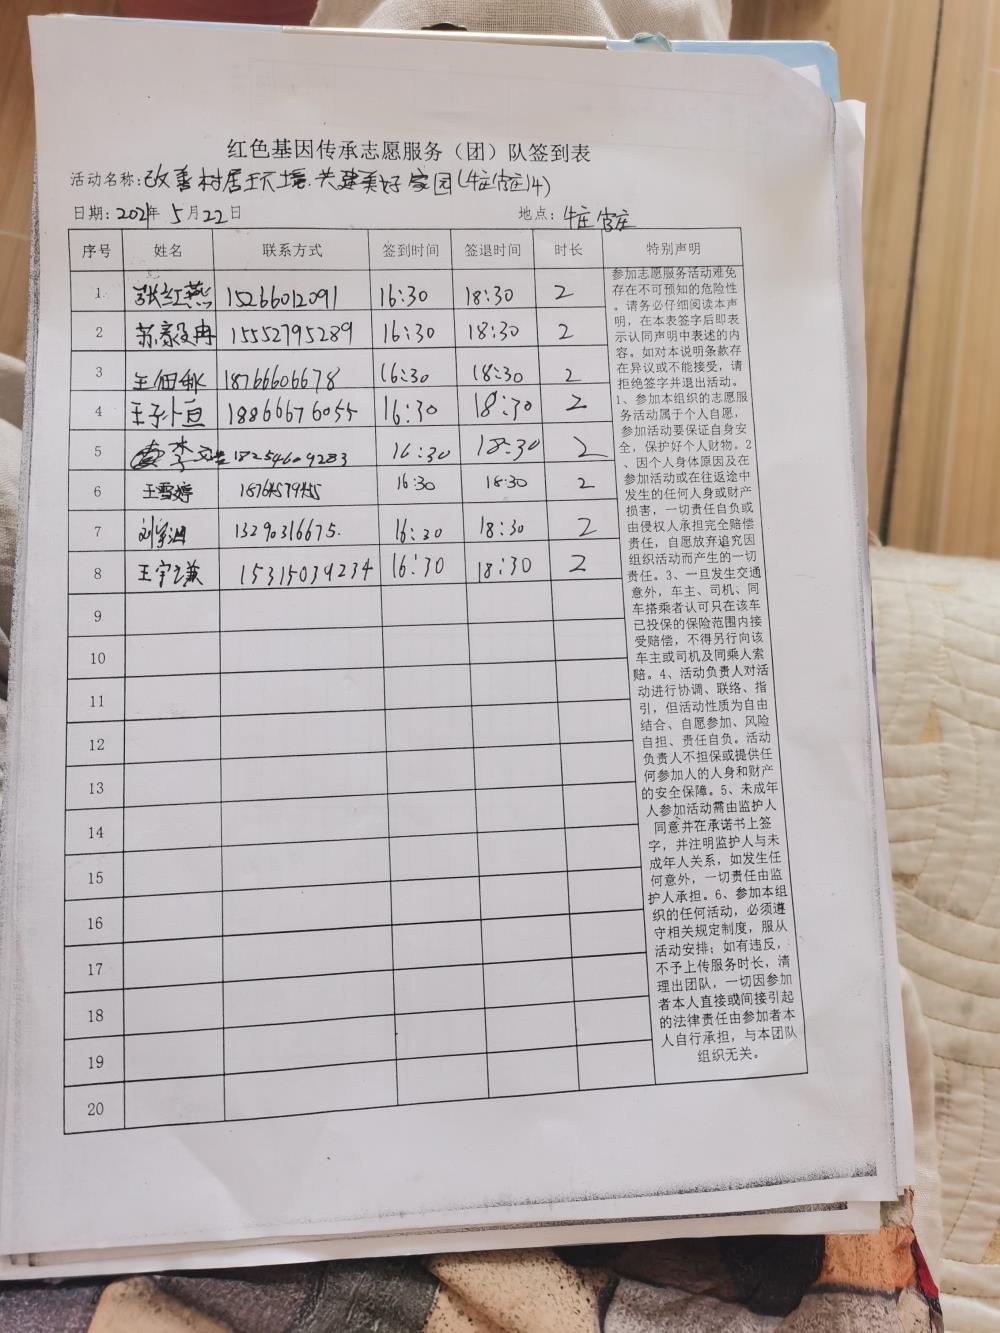 红色基因传承志愿服务（团）队签到表
活动名称：改善村居环境.共建美好家园(牛庄官庄14)
日期：2021年 5月22日 地点：牛庄官庄
序号 姓名 联系方式 签到时间 签退时间 时长 特别声明
1 张红燕 15266012091 16:30 18:30 2
2 苏毅冉 15552795289 16:30 18:30 2
3 王佃 18766606678 16:30 18:30 2
4 王子恒 18866676055 16:30 18:30 2
5 李 18254609283 16:30 18:30 2
6 王雪婷 16:30 18:30 2
7 刘 13290316675. 16:30 18:30 2
8 王宇 15315039234 16:30 18:30 2
9
10
11
12
13
14
15
16
17
18
19
20
参加志愿服务活动难免
存在不可预知的危险性
。请务必仔细阅读本声
明，在本表签字后即表
示认同声明中表述的内
容。如对本说明条款存
在异议或不能接受，请
拒绝签字并退出活动。
1、参加本组织的志愿服
务活动属于个人自愿，
参加活动要保证自身安
全，保护好个人财物。2
、因个人身体原因及在
参加活动或在往返途中
发生的任何人身或财产
损害，一切责任自负或
由侵权人承担完全赔偿
责任，自愿放弃追究因
组织活动而产生的一切
责任。3、一旦发生交通
意外，车主、司机、同
车搭乘者认可只在该车
已投保的保险范围内接
受赔偿，不得另行向该
车主或司机及同乘人索
赔。4、活动负责人对活
动进行协调、联络、指
引，但活动性质为自由
结合、自愿参加、风险
自担、责任自负。活动
负责人不担保或提供任
何参加人的人身和财产
的安全保障。5、未成年
人参加活动需由监护人
同意并在承诺书上签
字，并注明监护人与未
成年人关系，如发生任
何意外，一切责任由监
护人承担。6、参加本组
织的任何活动，必须遵
守相关规定制度，服从
活动安排；如有违反，
不予上传服务时长，清
理出团队，一切因参加
者本人直接或间接引起
的法律责任由参加者本
人自行承担，与本团队
组织无关。